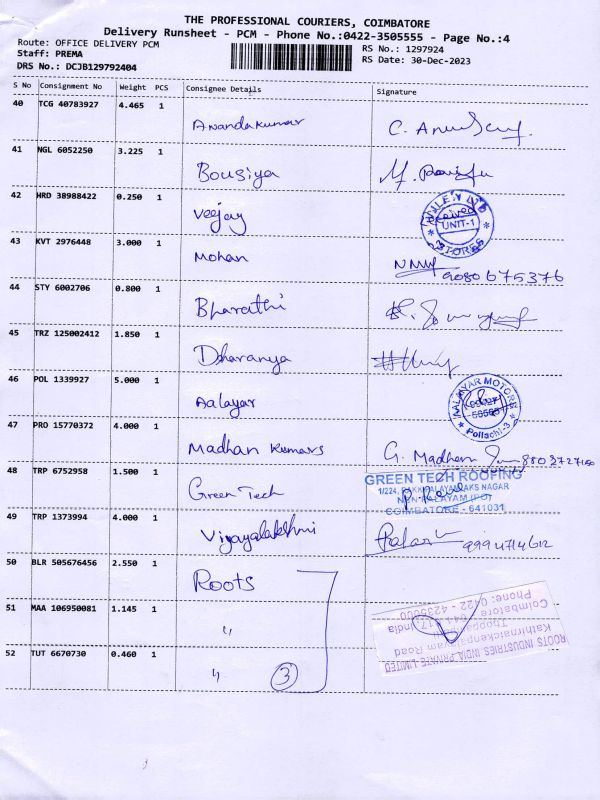 THE PROFESSIONAL COURIERS, COIMBATORE
Delivery Runsheet - PCM - Phone No.:0422-3505555 - Page No.:4
Route: OFFICE DELIVERY PCM
RS No.: 1297924
Staff: PREMA
RS Date: 30-Dec-2023
DRS No.: DCJB129792404
S No Consignment No Weight PCS Consignee Details Signature
40 TCG 40783927 4.465 1 Anandakumar
41 NGL 6052250 3.225 1 Bousiya
42 HRD 38988422 0.250 1 Veejay
UNIT-1
STORES
43 KVT 2976448 3.000 1 Mohan 9080675376
44 STY 6002706 0.800 1 Bharathi
45 TRZ 125002412 1.850 1 Dharanya
46 POL 1339927 5.000 1 Aalayar
AALAYAR MOTORS
Pollachi-3
47 PRO 15770372 4.000 1 Madhan Kumars G. Madhan
48 TRP 6752958 1.500 1 Green Tech
GREEN TECH ROOFING
COIMBATORE - 641031
49 TRP 1373994 4.000 1 Vijayalakshmi 9994714612
50 BLR 505676456 2.550 1 Roots
51 MAA 106950081 1.145 1 "
52 TUT 6670730 0.460 1 " 3
ROOTS INDUSTRIES INDIA PRIVATE LIMITED
Kathirnaickenpalayam Road
Phone: 0422 - 4235000